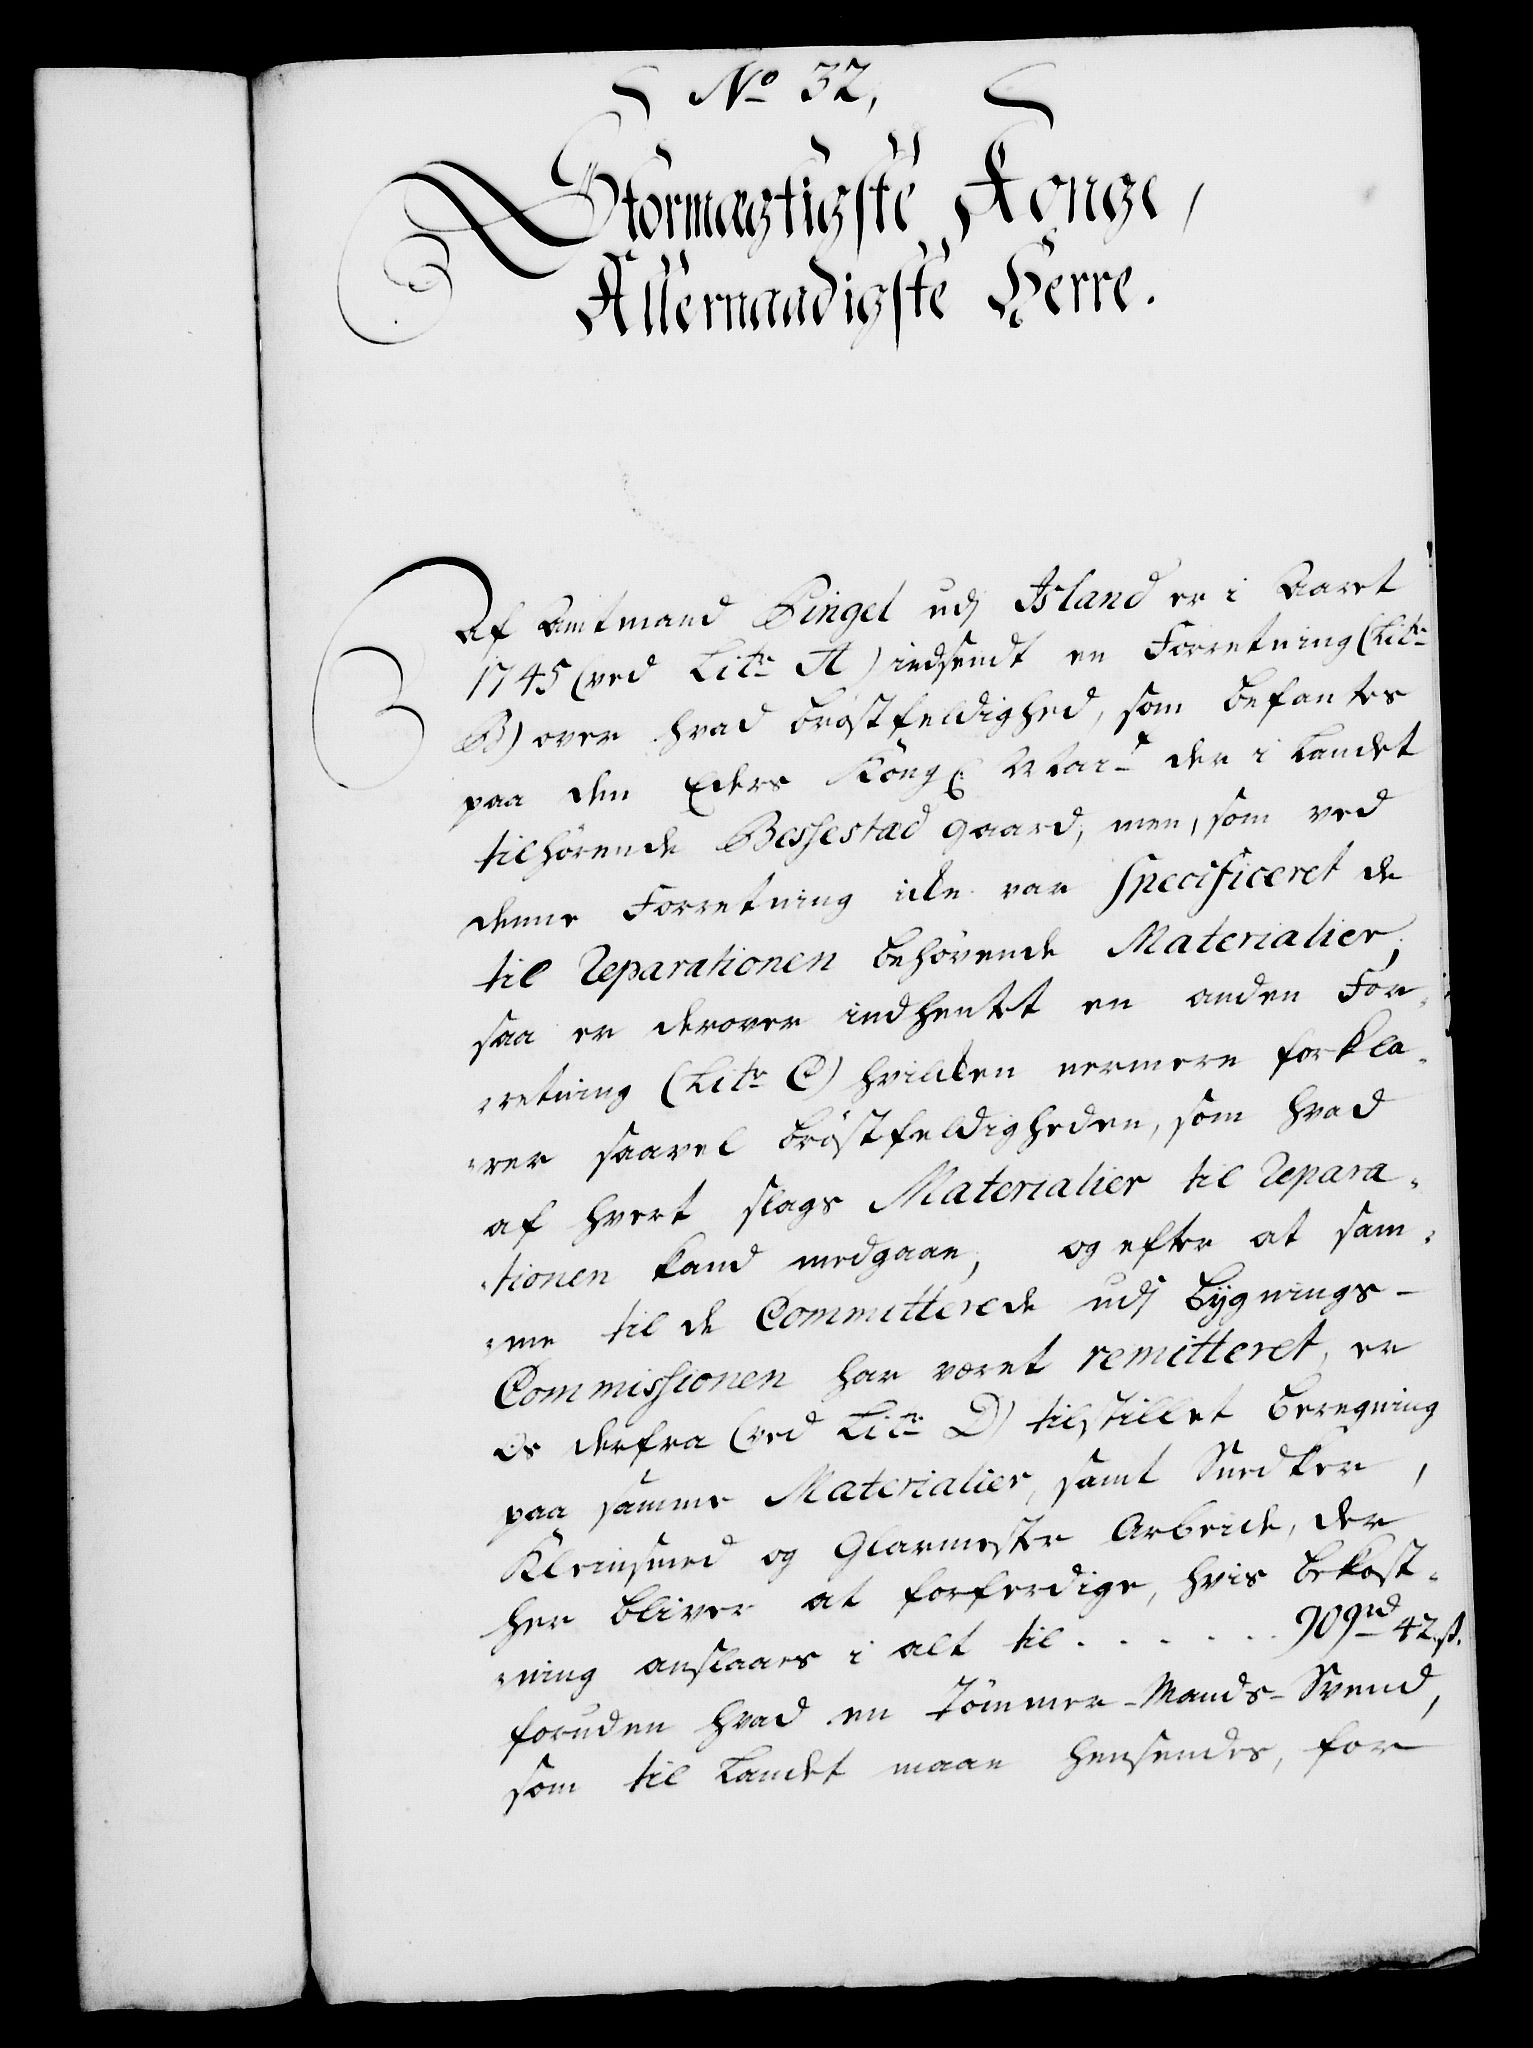 No 32,
Stormægtigste Konge,
Allernaadigste Herre.
Af Amtmand Pingel udj Island er i Aaret
1745 (ved Litr A) indsendt en Forretning (Litr
B) over hvad Brøstfeldighed, som befantes
paa den Eders Kongl. Mait der i Landet
tilhørende Bessestad gaard, men, som ved
denne Forretning icke var Specificeret de
til Reparationen behøvende Materialier,
saa er derover indhentet en anden For-
retning (Litr C) hvilcken nermere forkla-
rer saavel Brøstfeldigheden, som hvad
af hvert slags Materialier til Repara-
tionen kand medgaae, og efter at sam-
me til de Committerede udj Bygnings-
Commissionen har været remitteret, er
Os derfra (ved Litr D) tilstillet Beregning
paa samme Materialier, samt Snedker,
Kleinsmed og Glarmester Arbeide, der
her bliver at forferdige, hvis bekost-
ning anslaaes i alt til . . . . . . 909rd 42 ß.
foruden hvad en Tømmer-Mands-Svend,
som til Landet maae hensendes, for